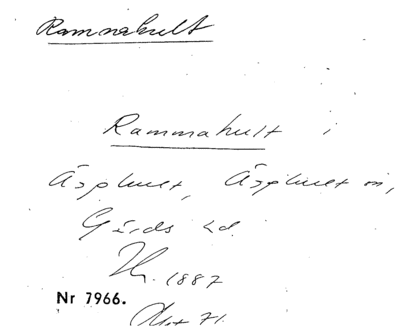 Ramnahult
Rammahult i
Äsphult, Äsphult sn,
Gärds hd.
1887
Nr 7966.
71.